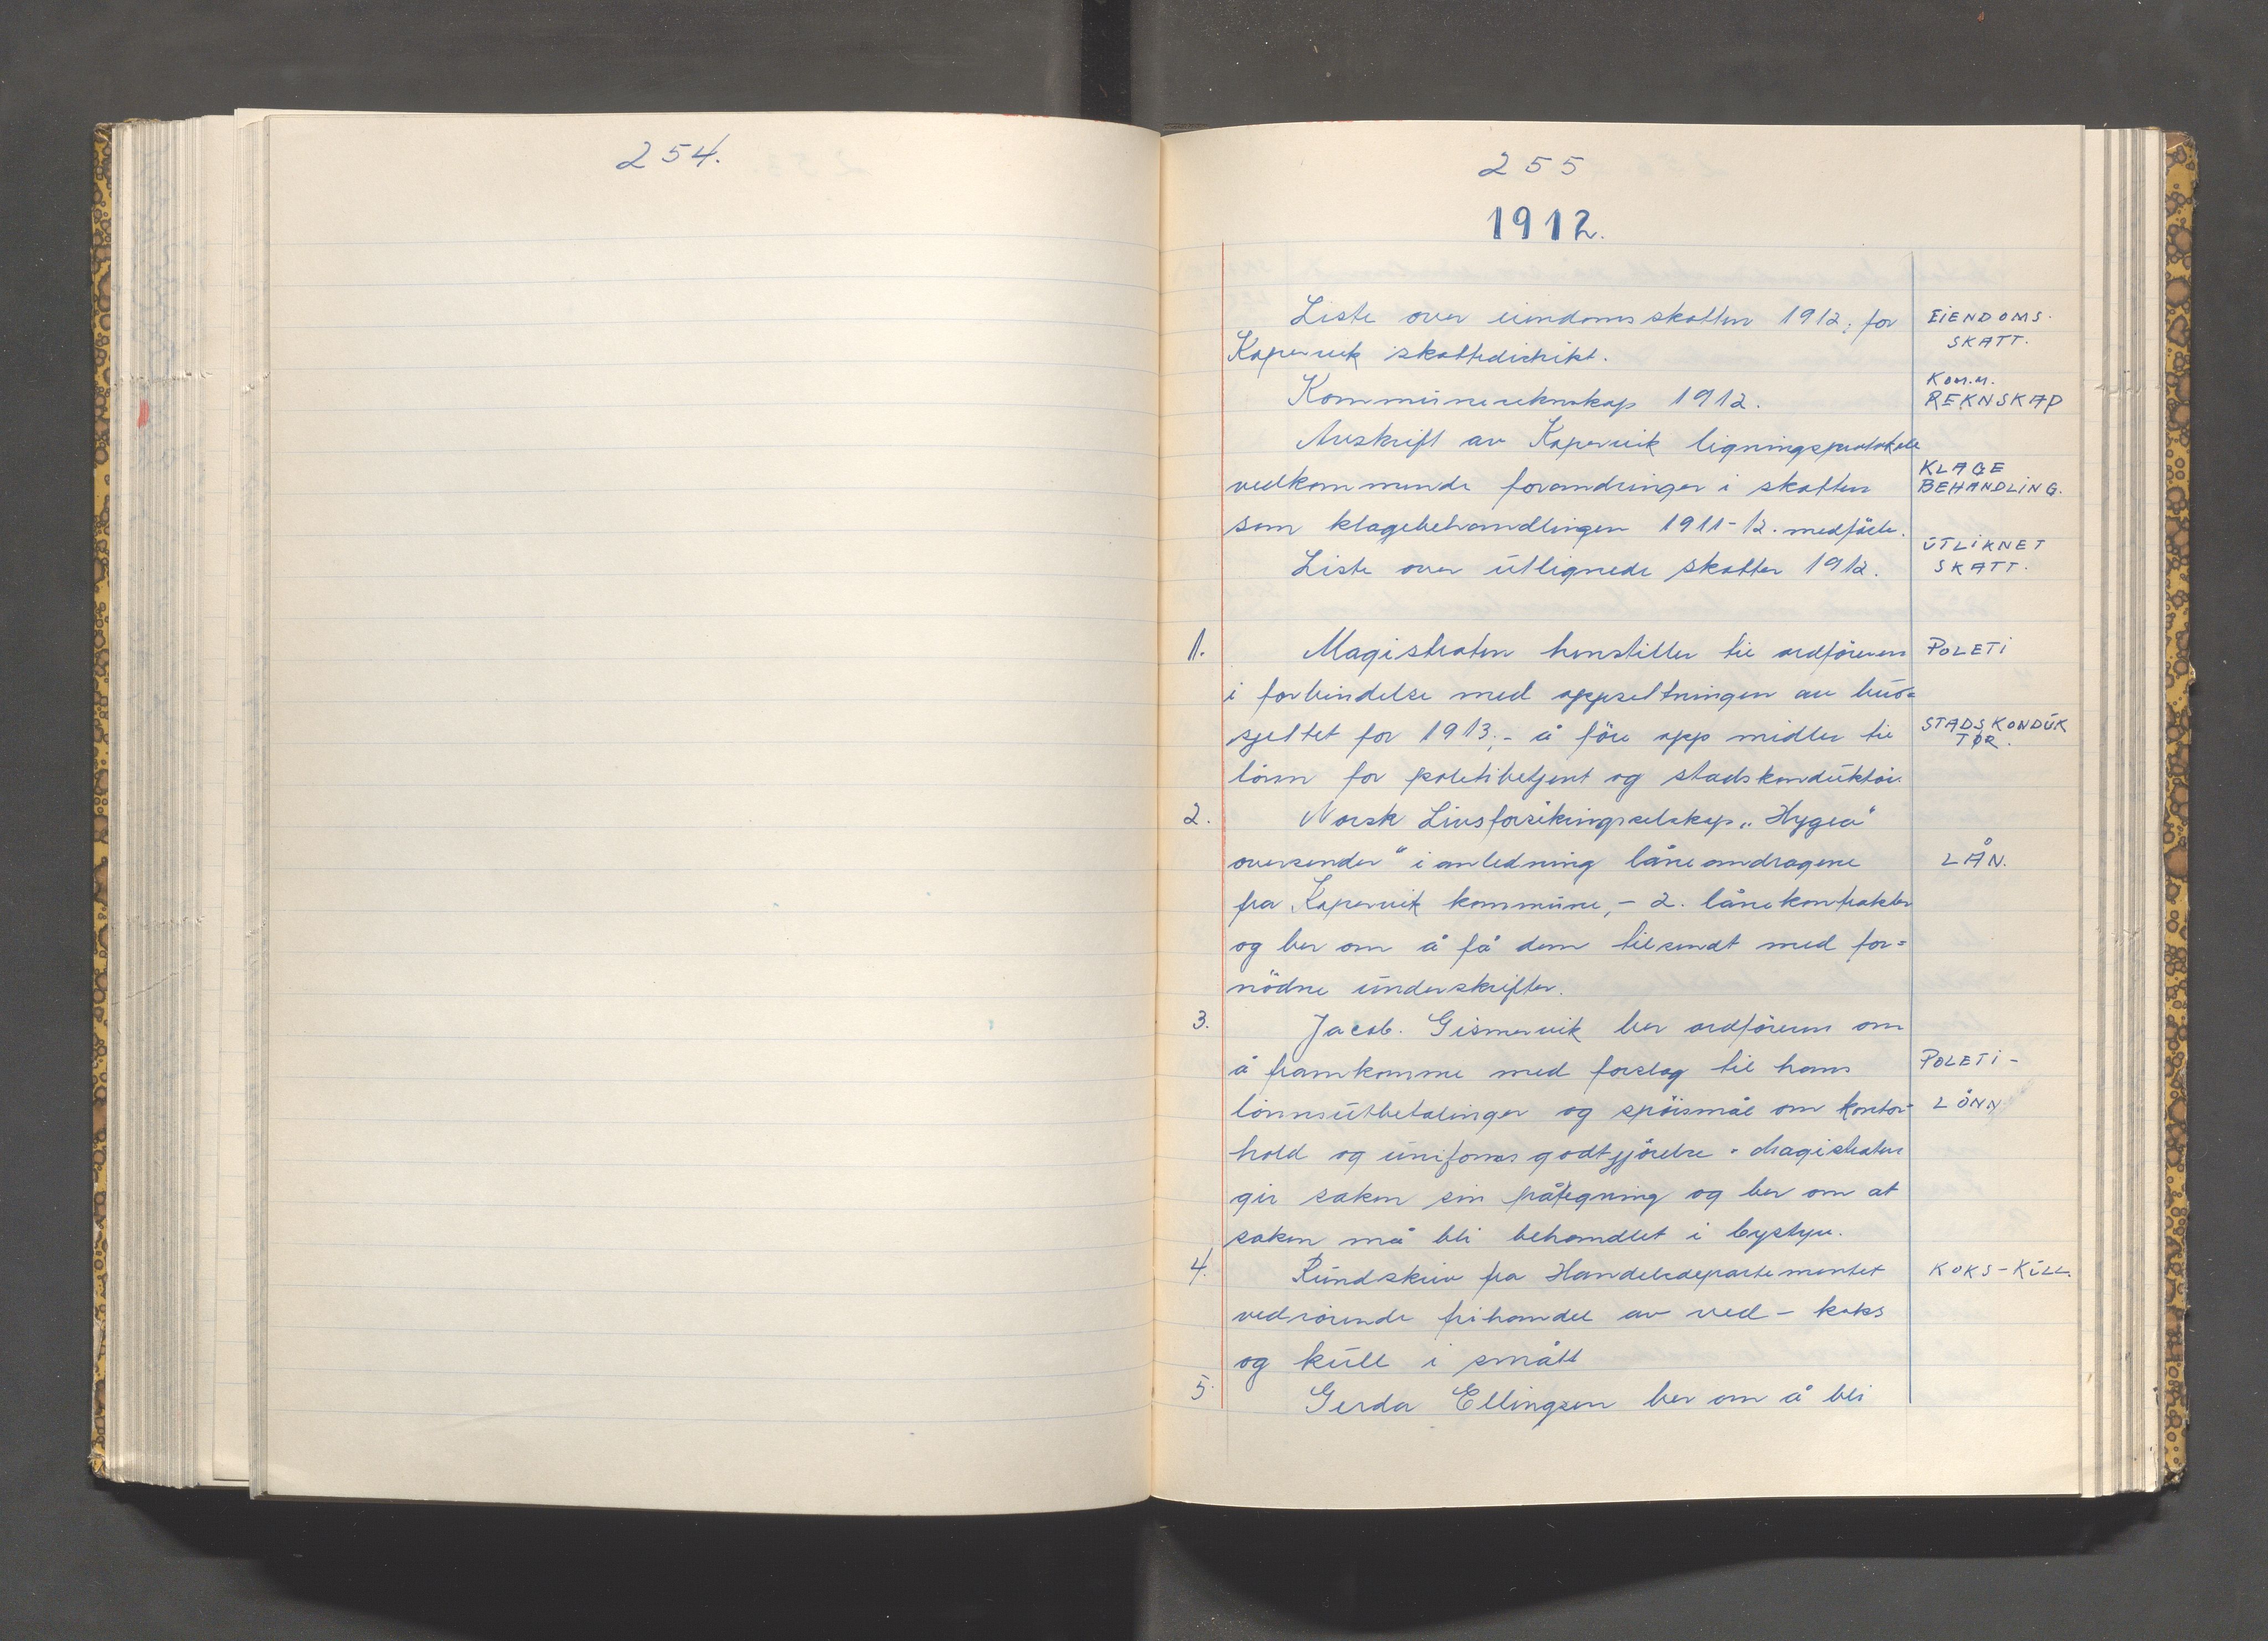 254.
255
1912.
Liste over eiendomsskatten 1912; for
EiENDOMS-
SKATT.
Kopervik skattedistrikt.
Kommunereknskap 1912.
KOM.M.
REKNSKAP
Avskrift av Kopervik ligningsprotokoll
vedkommende forandringer i skatten
KLAGE
BEHANDLiNG.
som klagebehandlingen 1911-12. medförte.
Liste over ütlignede skatter 1912.
ÜTLiKNET
SKATT.
1. Magistraten henstiller til ordföreren
POLETi
i forbindelse med oppsettningen av bud=
sjettet for 1913;- å före opp midler til
STADSKONDÜK
TØR.
lönn for poletibetjent og stadskondüktör.
2. Norsk Livsforsikringsselskap „Hygea"
oversender" i anledning låneandragene
LÅN.
fra Kopervik kommüne,- 2. lånekontrakter
og ber om å få dem tilsendt med for=
nödne ünderskrifter.
3. Jacob. Gismervik ber ordföreren om
å framkomme med forslag til hans
POLETi-
lönnsütbetalinger og spörsmål om kontor-
LÖNN
hold og üniformsgodtgjörelse. Magistraten
gir saken sin påtegning og ber om at
saken må bli behandlet i bystyre.
4.Ründskriv fra Handelsdepartementet
KOKS-KÜLL.
vedrörende frihandel av ved- koks
og küll i smått
5. Gerda Ellingsen ber om å bli